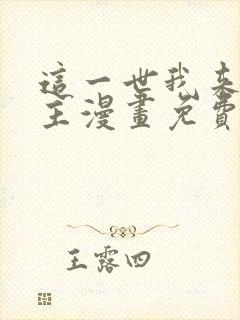 這一世我來
主漫畫免費
王露四